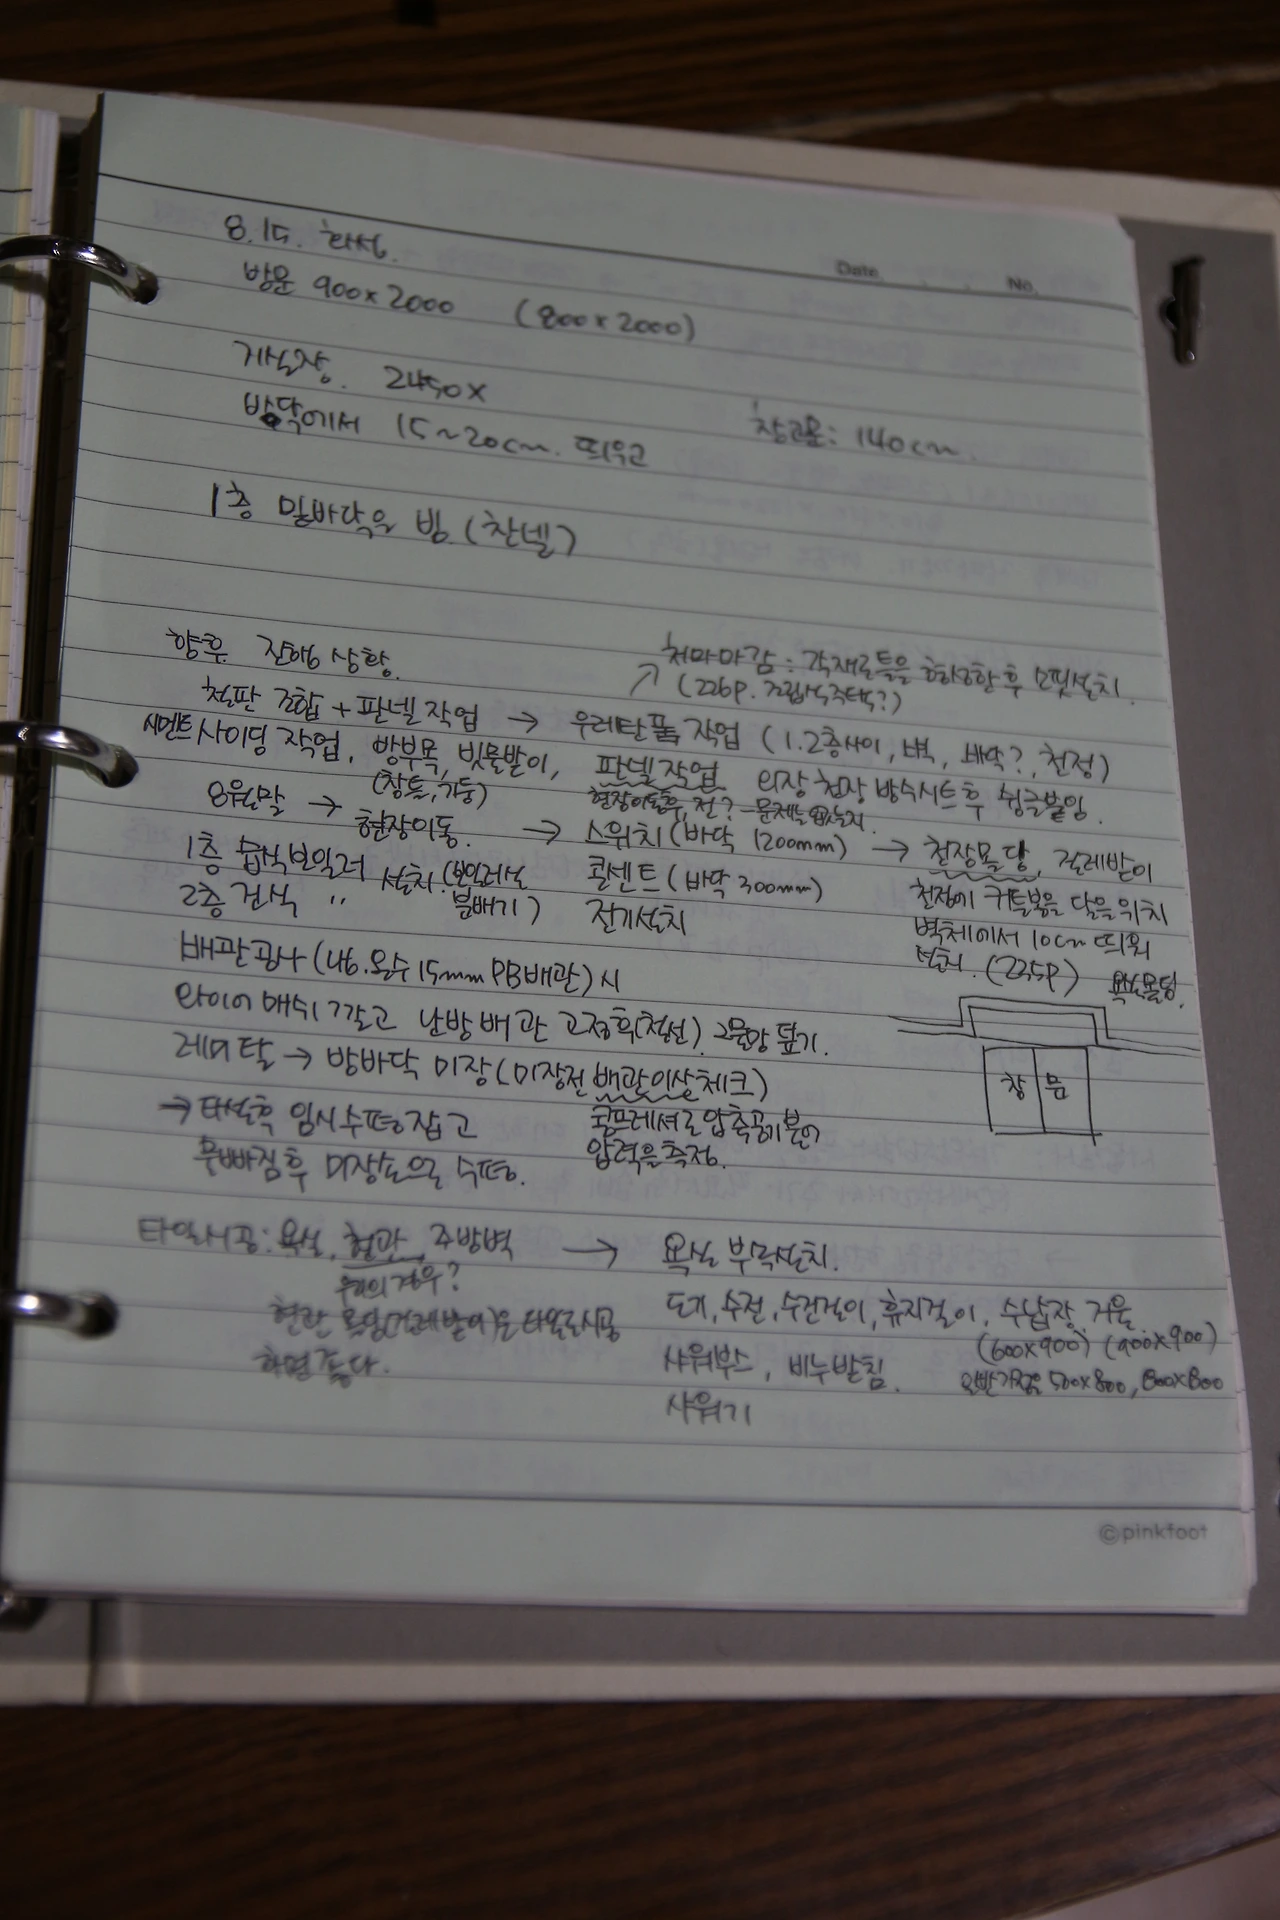 8.15. 화성.
Date. No.
방문 900x2000 (800x2000)
거실장. 2450x
바닥에서 15~20cm. 띄우고
창고문: 140cm.
1층 밑바닥은 빔(찬넬)
향후 진행상황.
처마마감: 각재로 틀을 형성한후 소핏설치.
(226p. 조립식주택?)
철판 조합 + 판넬작업 → 우레탄폼 작업 (1.2층사이, 벽, 바닥?, 천정)
시멘트사이딩 작업, 방부목, 빗물받이, 판넬작업 외장 천장 방수시트후 슁글붙임.
(창틀, 기둥) 현장이동후, 전? - 문제는 없는지.
8월말 → 현장이동. → 스위치(바닥 1200mm) → 천장몰딩, 걸레받이
1층 습식보일러 설치.(보일러실 콘센트(바닥 300mm) 천정에 커튼봉을 달을 위치
2층 건식 〃 불배기) 전기설치 벽체에서 10cm 띄워
설치. (235p)
배관공사(냉.온수 15mm PB배관)시
와이어 매쉬 깔고 난방배관 고정후(철선). 그물망 덮기.
레미탈 → 방바닥 미장(미장전 배관이상체크)
창 문
→ 타설후 임시수평잡고 콤프레셔로 압축공기 불어
물빠짐후 미장손으로 수평. 압력을 측정.
타일시공: 욕실, 현관, 주방벽 → 욕실 부속설치.
우리의 경우?
도기, 수전, 수건걸이, 휴지걸이, 수납장, 거울.
(600x900) (900x900)
현관 몰딩(걸레받이)은 타일로시공
하면 좋다.
샤워부스, 비누받침. 일반가정은 500x800, 800x800
샤워기
©pinkfoot